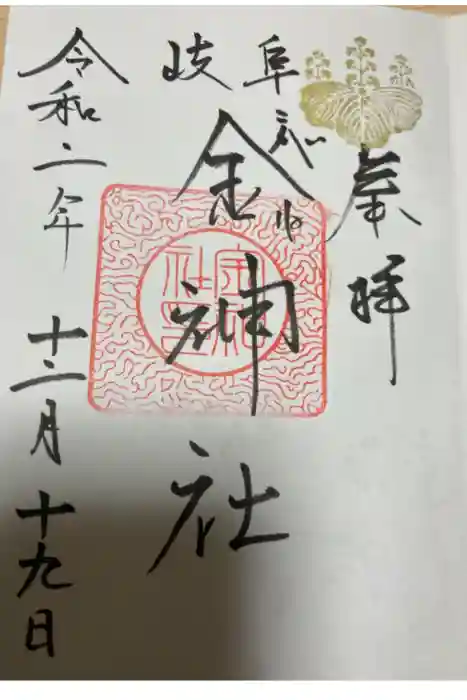 奉拝
岐阜
こがね
金神社
令和二年十二月十九日